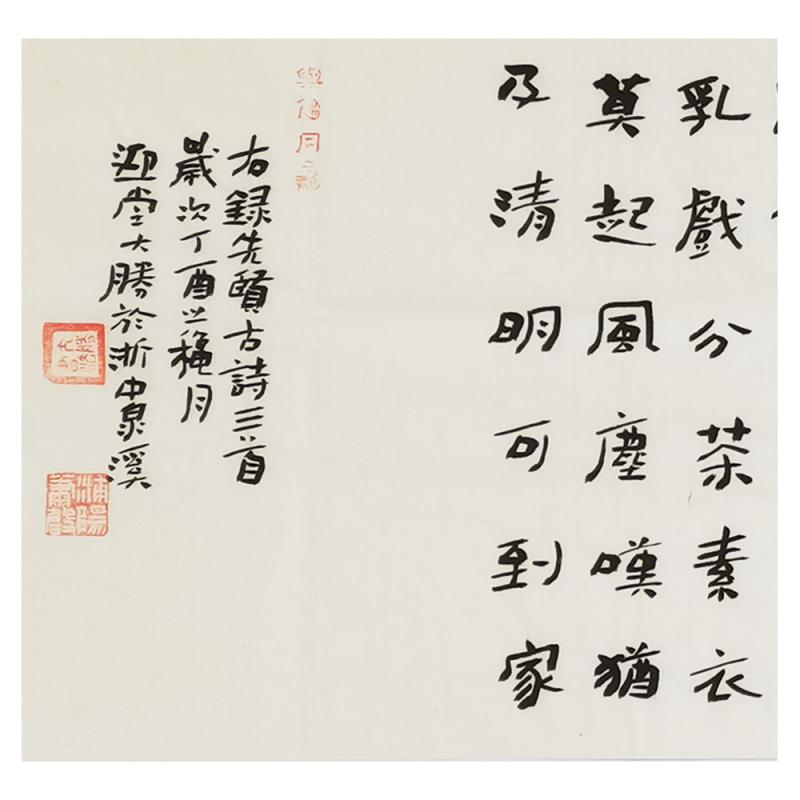 乳戲分茶素衣
莫起風塵嘆猶
及清明可到家
右錄先賢古詩三首
歲次丁酉之穐月
迎堂大勝於浙中泉溪